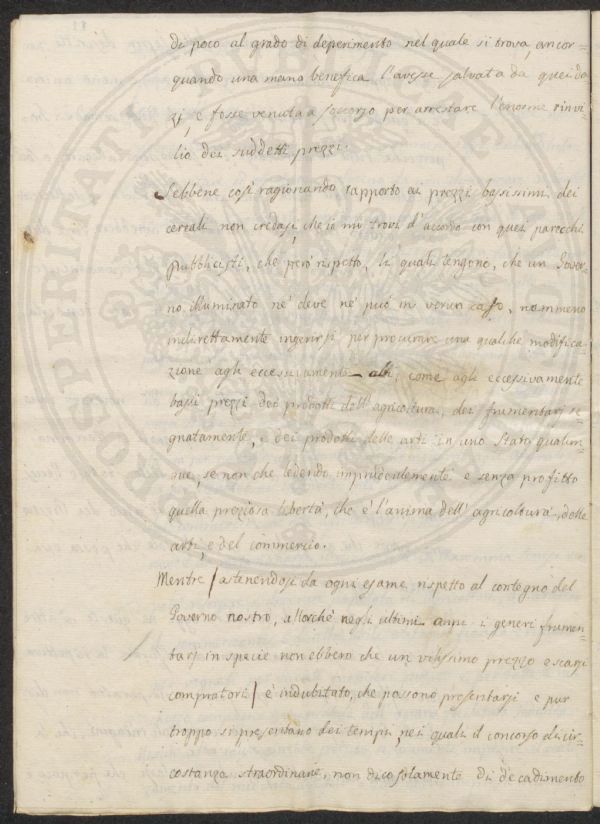 da poco al grado di deperimento nel quale si trova, ancor-
quando una mano benefica l'avesse salvata da quei da
zj, e fosse venuta a soccorso per arrestare l'enorme rinvi-
lio dei suddetti prezzi.
Sebbene così ragionando rapporto ai prezzi bassissimi dei
cereali non credasi, che io mi trovi d'accordo con quei parecchi
Pubblicisti, che però rispetto, li quali tengono, che un Gover-
no illuminato nè deve nè può in verun caso, nemmeno
indirettamente ingerirsi per procurare una qualche modifica-
zione agli eccessivamente alti, come agli eccessivamente
bassi prezzi dei prodotti dell'agricoltura, dei frumentarj se-
gnatamente, e dei prodotti delle arti in uno Stato qualun-
que, se non che ledendo imprudentemente e senza profitto
quella preziosa libertà, che è l'anima dell'agricoltura, delle
arti, e del commercio.
Mentre / astenendosi da ogni esame rispetto al contegno del
Governo nostro, allorchè negli ultimi anni i generi frumen-
tarj in specie non ebbero che un vilissimo prezzo e scarsi
compratori / è indubitato, che possono presentarsi e pur
troppo si presentano dei tempi nei quali il concorso di cir-
costanze straordinarie, non dico solamente di decadimento
PROSPERITATI PUBLICAE